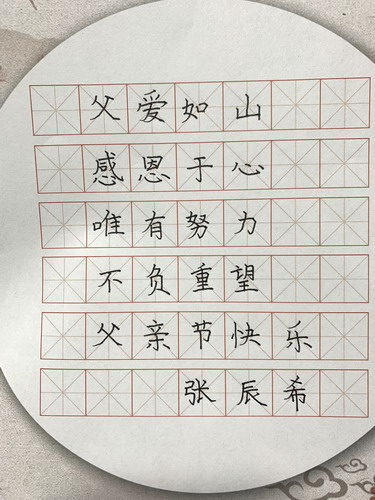 父爱如山
感恩于心
唯有努力
不负重望
父亲节快乐
张辰希